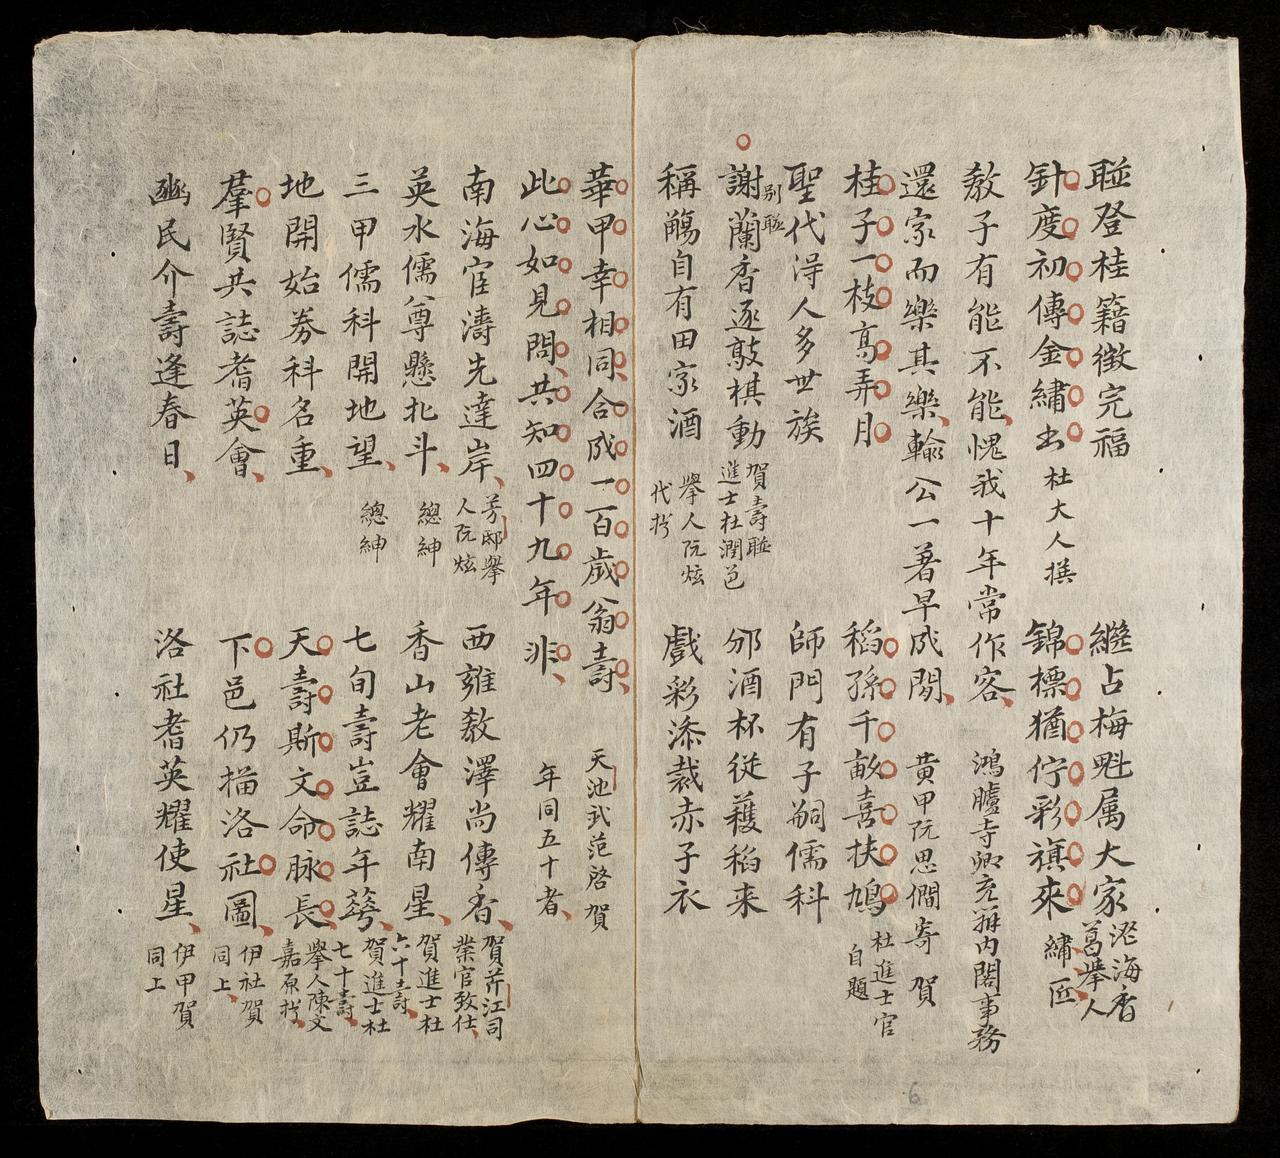 聯登桂籍徵完福 繼占梅魁属大家 茫海香葛擧人
針度初傳金繡出 杜大人撰 錦標猶佇彩旗來 繡匠
敎子有能不能愧我十年常作客 鴻臚寺卿充辦内閣事務
還家而樂其樂輸公一著早成閒 黄甲阮思僩寄賀
桂子一枝高弄月 稻孫千畝喜扶鳩 杜進士官自題
聖代淂人多世族 師門有子嗣儒科
别聮
謝蘭香逐敲棋動 賀壽聮進士杜潤邑 邠酒杯従蘀稻来
稱觴自有田家酒 擧人阮炫代拧 戲彩添裁赤子衣
華甲幸相同合成一百歲翁壽 天池武范啓賀
此心如見問共知四十九年非 年同五十者
南海宦濤先達岸 芳邸擧人阮炫 西雍敎澤尚傳香 賀芹江司業官致仕
英水儒尊懸北斗 總紳 香山老會耀南星 賀進士杜六十壽
三甲儒科開地望 總紳 七旬壽豈誌年蕚 賀進士杜七十壽
地開始劵科名重 天壽斯文命脉長 擧人陳文嘉原拧
羣賢共誌耆英會 下邑仍描洛社圖 伊社賀同上
豳民介壽逢春日 洛社耆英耀使星 伊甲賀同上
6